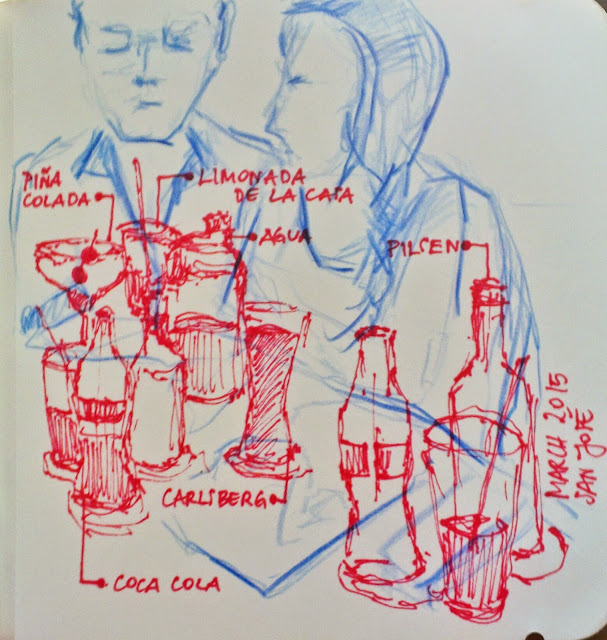 PIÑA
COLADA
LIMONADA
DE LA CASA
AGUA
PILSEN
CARLSBERG
COCA COLA
MARCH 2015
SAN JOSE